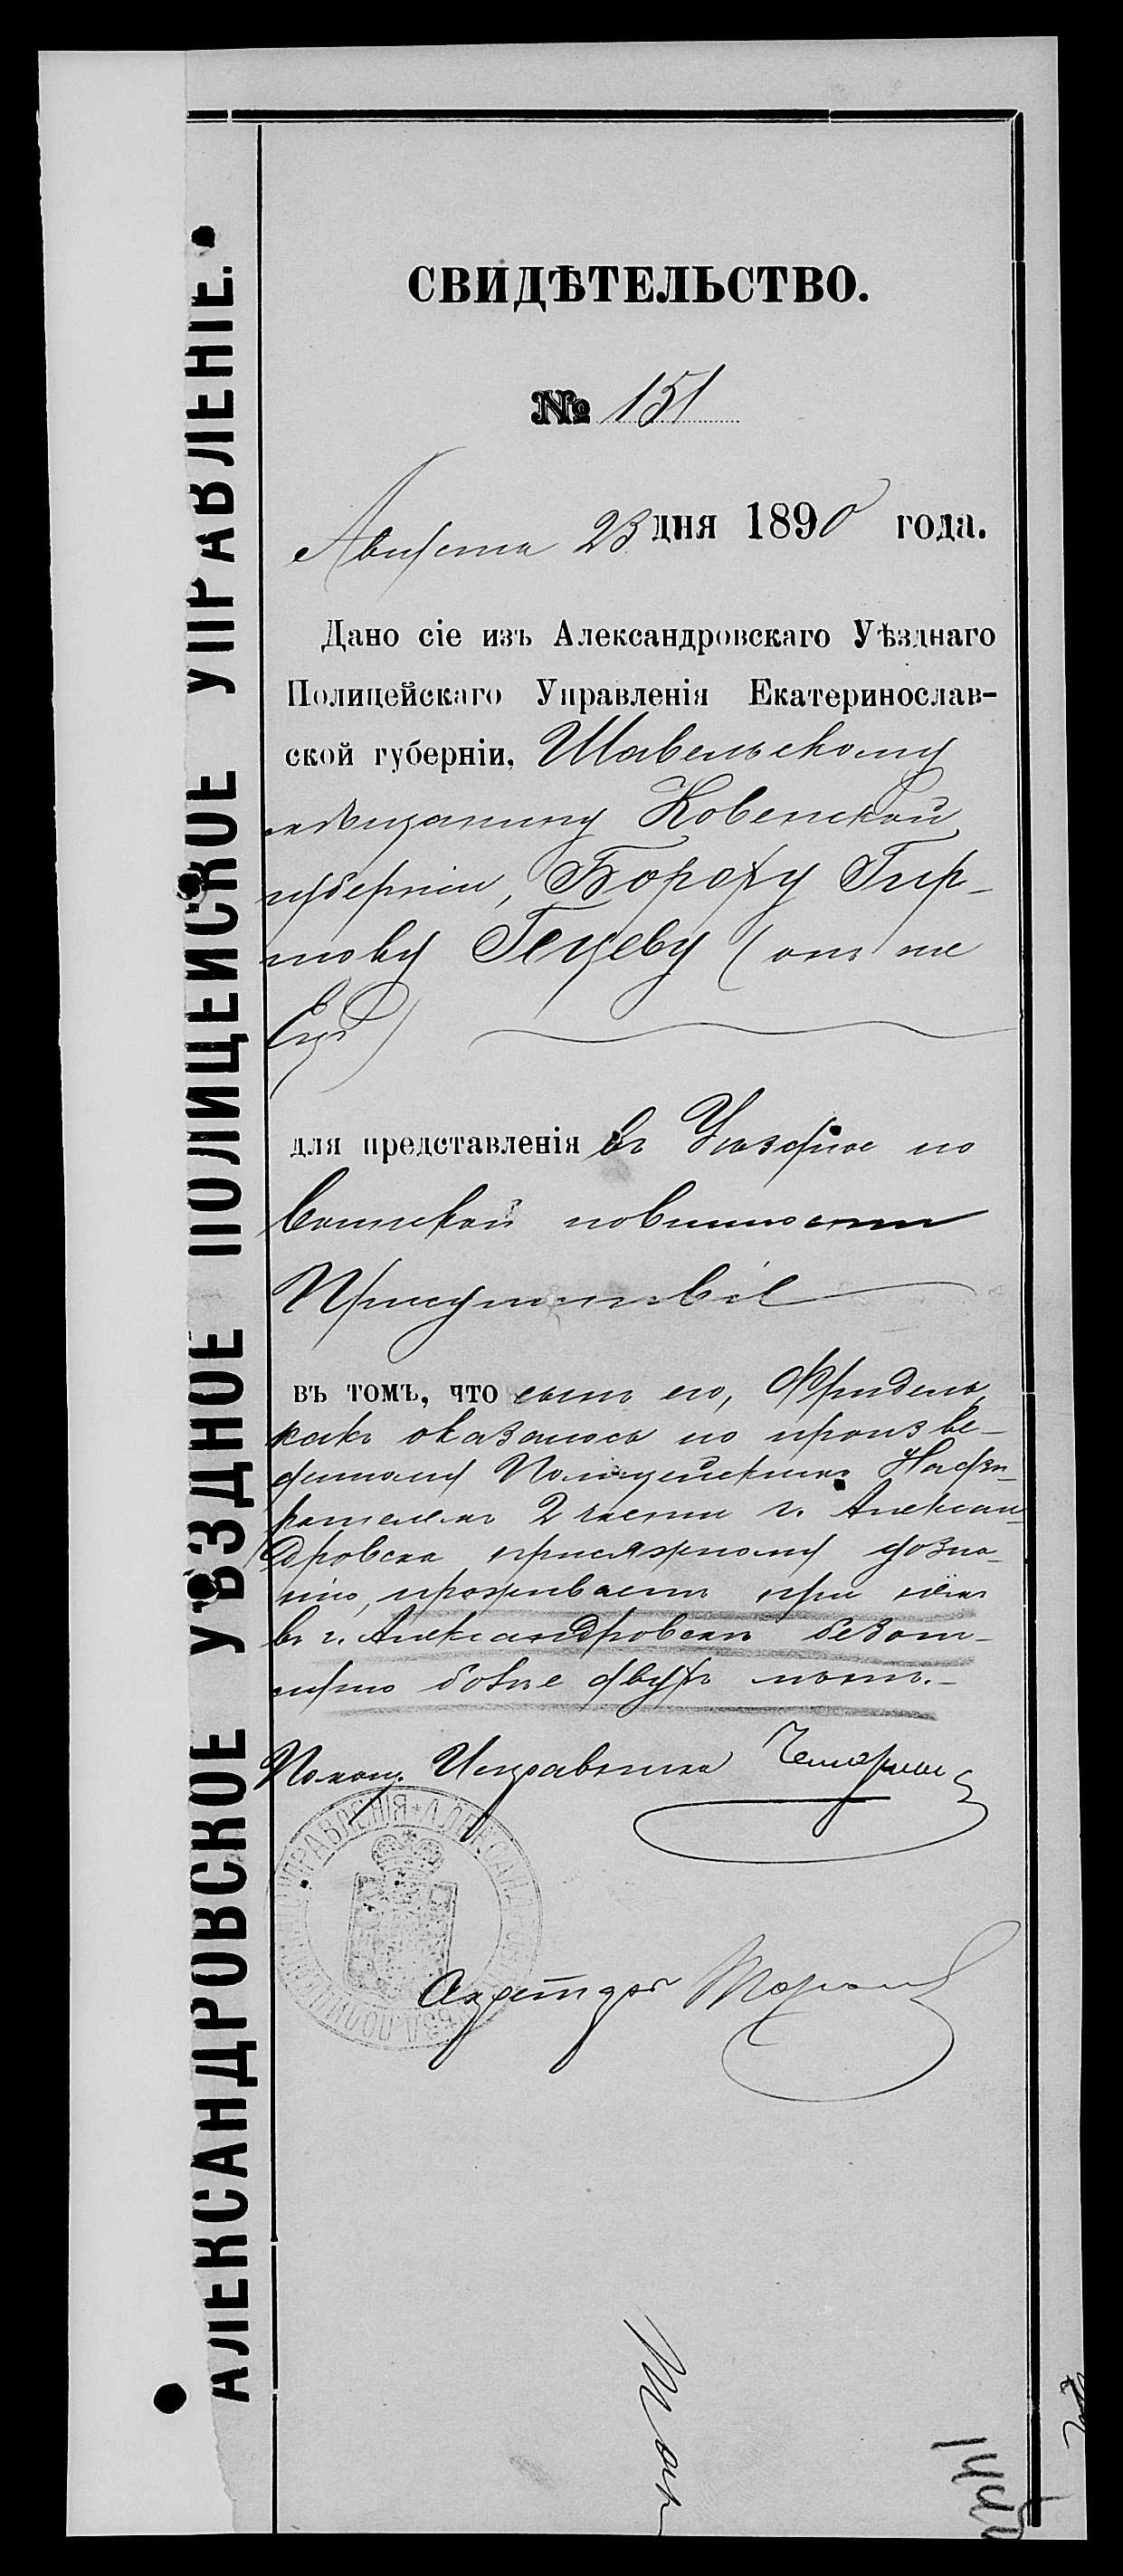 АЛЕКСАНДРОВСКОЕ УѢЗДНОЕ ПОЛИЦЕЙСКОЕ УПРАВЛЕНІЕ.
СВИДѢТЕЛЬСТВО.
№ 151
Августа 23 дня 1890 года.
Дано сіе изъ Александровскаго Уѣзднаго
Полицейскаго Управленія Екатеринослав-
ской губерніи, Шавельскому
мѣщанину Ковенской
губерніи, Бороху Гир-
шову Гецеву (онъ же
Гецъ)
для представленія въ Уѣздное по
воинской повинности
Присутствіе
въ томъ, что сынъ его, Фридель,
какъ оказалось по произве-
денному Полицейскимъ Надзи-
рателемъ 2 части г. Алексан-
дровска присяжному дозна-
нію, проживаетъ при нёмъ
въ г. Александровскѣ безот-
лучно болѣе двухъ лѣтъ.-
Помощ. Исправника
Секретарь